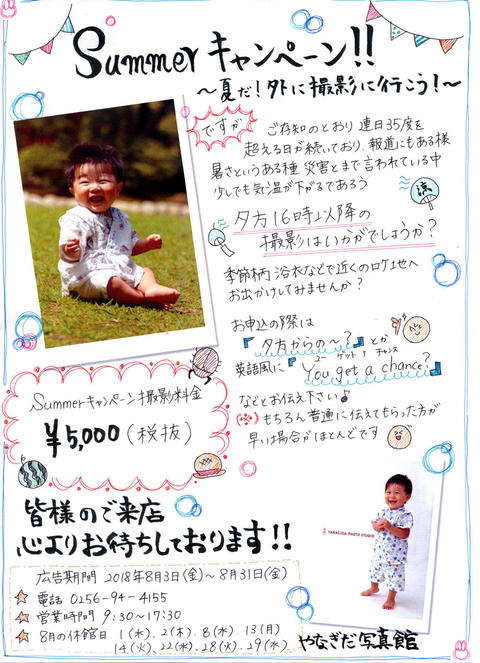 Summer キャンペーン!!
〜夏だ!外に撮影に行こう!〜
ですが
ご存知のとおり 連日35度を
超える日が続いており、報道にもある様
暑さというある種 災害とまで言われている中
少しでも気温が下がるであろう
涼
夕方16時以降の
撮影はいかがでしょうか?
季節柄 浴衣などで近くのロケ地へ
お出かけしてみませんか?
お申込の際は
『夕方からの〜?』とか
英語風に『You get a chance?』
ユー ゲット ア チャンス
などとお伝え下さい♪
(※) もちろん普通に伝えてもらった方が
早い場合がほとんどです
Summerキャンペーン撮影料金
¥5,000(税抜)
YANAGIDA PHOTO STUDIO
皆様のご来店
心よりお待ちしております!!
広告期間 2018年8月3日(金)〜8月31日(金)
☆ 電話 0256-94-4155
☆ 営業時間 9:30〜17:30
☆ 8月の休館日 1(水)、2(木)、8(水) 13(月)
14(火)、22(水)、28(火)、29(水)
やなぎだ写真館